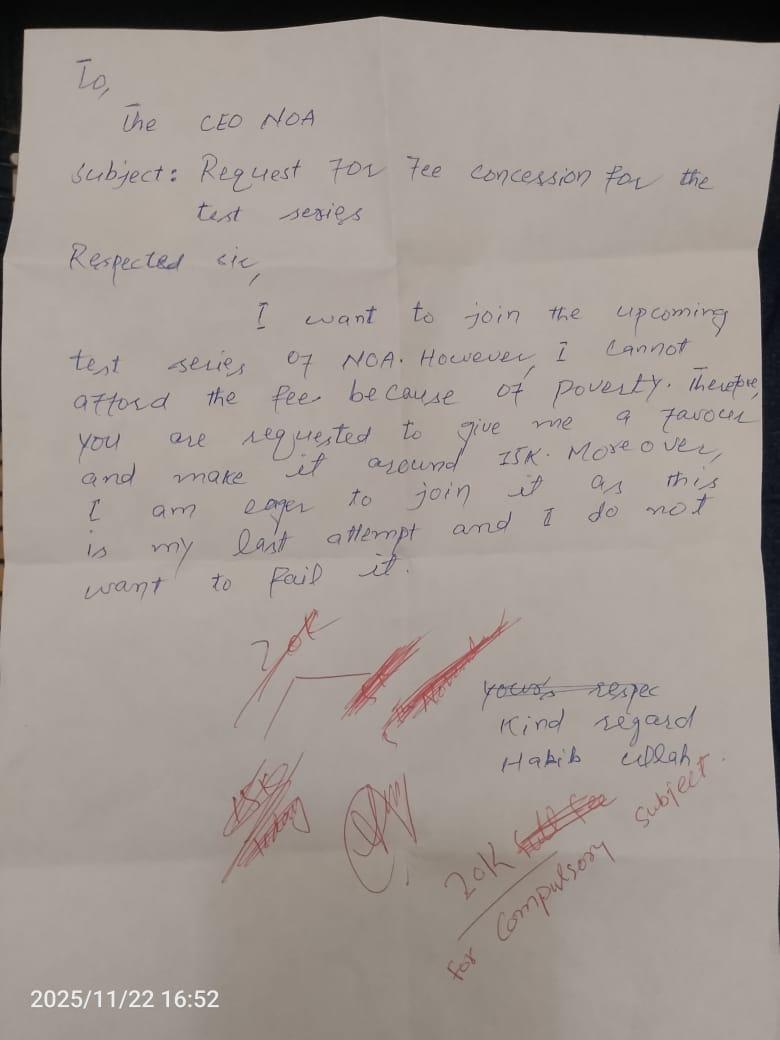 To,
The CEO NOA
Subject: Request For Fee concession for the
test series
Respected sir,
I want to join the upcoming
test series of NOA. However, I cannot
afford the fee because of poverty. Therefore,
you are requested to give me a favour
and make it around 15K. Moreover,
I am eager to join it as this
is my last attempt and I do not
want to fail it.
20K
yours respec
Kind regard
Habib ullah
15K
today
20K full fee
for Compulsory subject.
2025/11/22 16:52